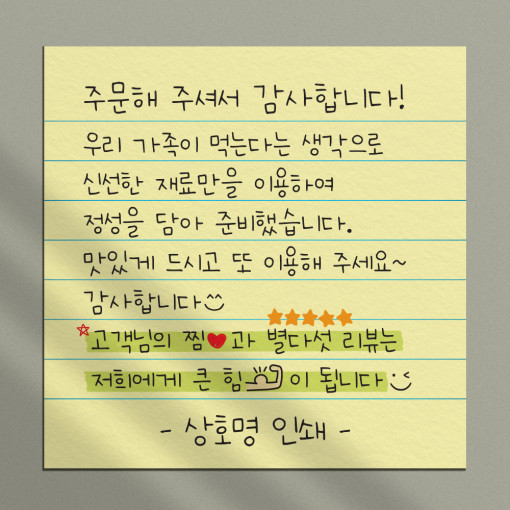 주문해 주셔서 감사합니다!
우리 가족이 먹는다는 생각으로
신선한 재료만을 이용하여
정성을 담아 준비했습니다.
맛있게 드시고 또 이용해 주세요~
감사합니다
고객님의 찜♥과 별다섯 리뷰는
저희에게 큰 힘이 됩니다
- 상호명 인쇄 -